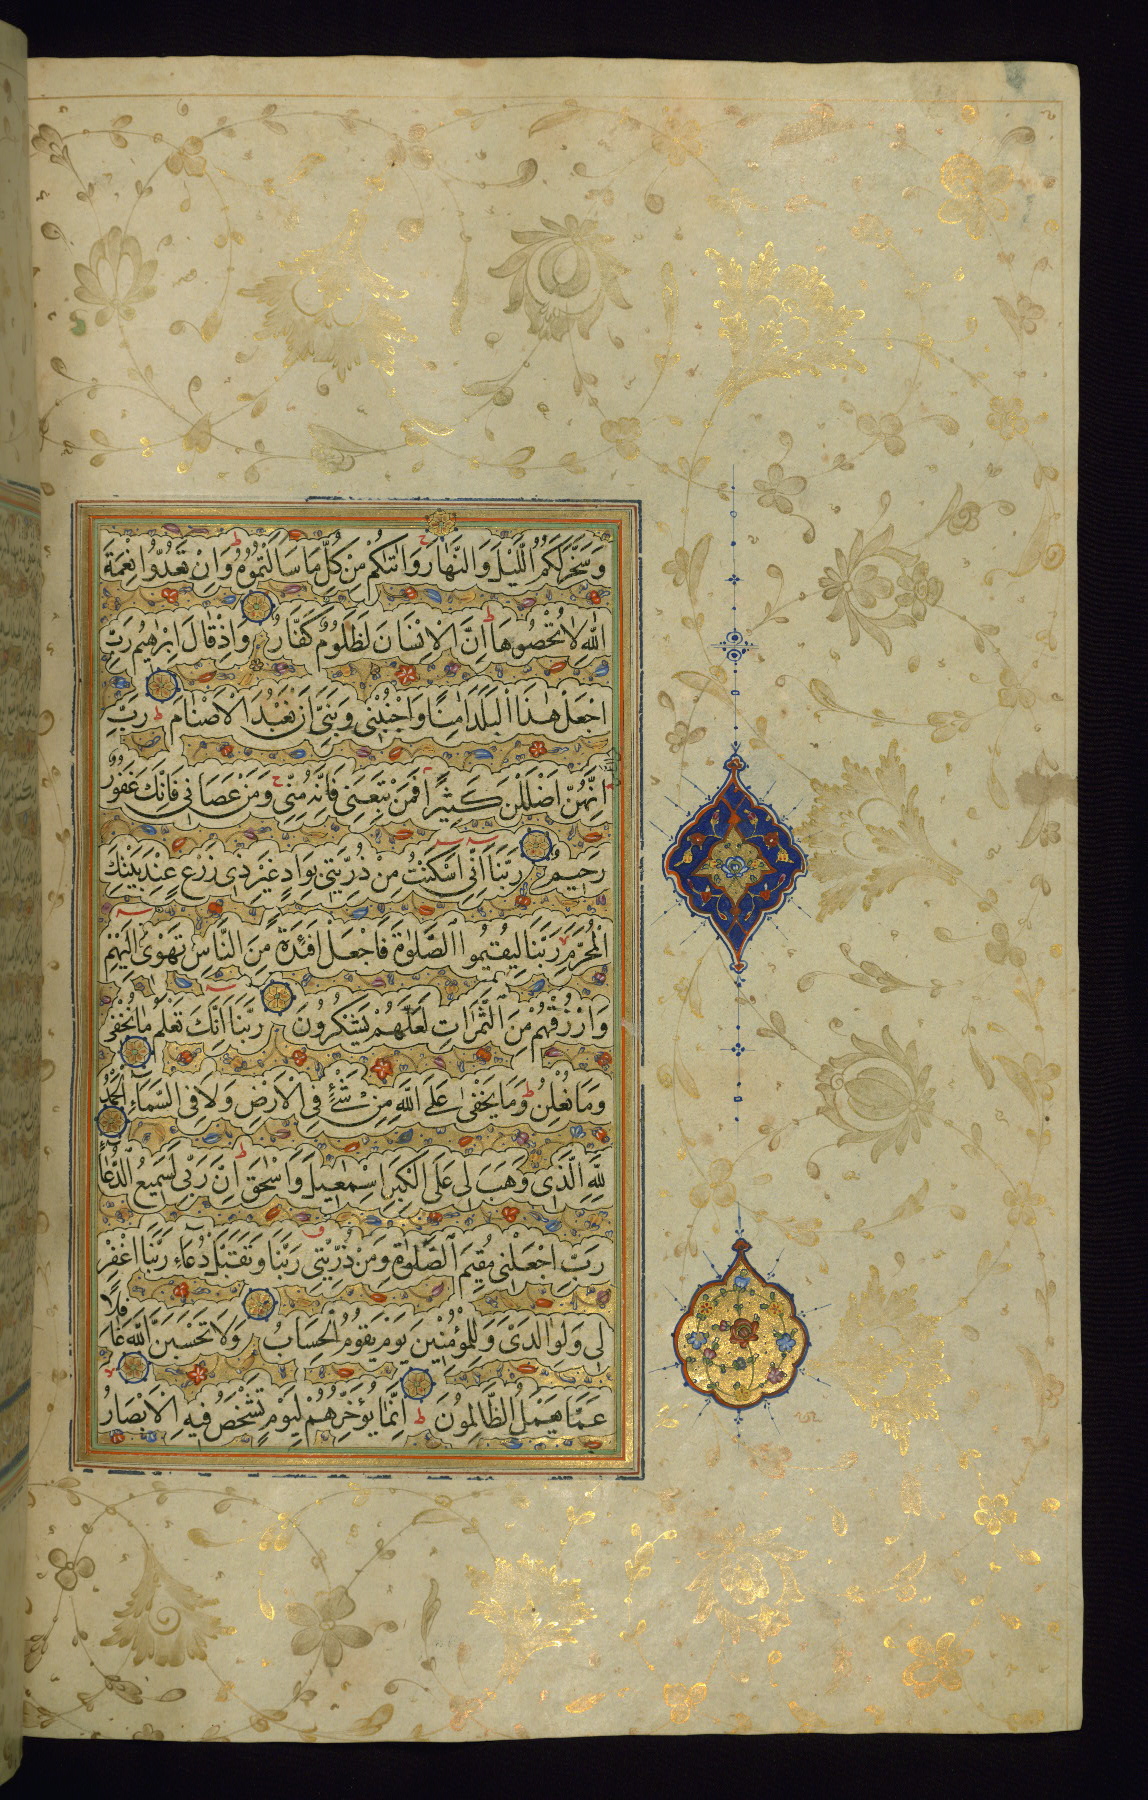 وَسَخَّرَ لَكُمُ اللَّيْلَ وَالنَّهَارَ وَاٰتٰيكُمْ مِنْ كُلِّ مَا سَاَلْتُمُوهُ وَاِنْ تَعُدُّوا نِعْمَةَ
اللهِ لَا تُحْصُوهَا اِنَّ الْاِنْسَانَ لَظَلُومٌ كَفَّارٌ وَاِذْ قَالَ اِبْرٰهِيمُ رَبِّ
اجْعَلْ هٰذَا الْبَلَدَ اٰمِنًا وَاجْنُبْنِى وَبَنِىَّ اَنْ نَعْبُدَ الْاَصْنَامَ رَبِّ
اِنَّهُنَّ اَضْلَلْنَ كَثِيرًا فَمَنْ تَبِعَنِى فَاِنَّهُ مِنِّى وَمَنْ عَصَانِى فَاِنَّكَ غَفُورٌ
رَحِيمٌ رَبَّنَا اِنِّى اَسْكَنْتُ مِنْ ذُرِّيَّتِى بِوَادٍ غَيْرِ ذِى زَرْعٍ عِنْدَ بَيْتِكَ
الْمُحَرَّمِ رَبَّنَا لِيُقِيمُوا الصَّلٰوةَ فَاجْعَلْ اَفْئِدَةً مِنَ النَّاسِ تَهْوِى اِلَيْهِمْ
وَارْزُقْهُمْ مِنَ الثَّمَرَاتِ لَعَلَّهُمْ يَشْكُرُونَ رَبَّنَا اِنَّكَ تَعْلَمُ مَا نُخْفِى
وَمَا نُعْلِنُ وَمَا يَخْفٰى عَلَى اللهِ مِنْ شَىْءٍ فِى الْاَرْضِ وَلَا فِى السَّمَاءِ اَلْحَمْدُ
لِلّٰهِ الَّذِى وَهَبَ لِى عَلَى الْكِبَرِ اِسْمٰعِيلَ وَاِسْحٰقَ اِنَّ رَبِّى لَسَمِيعُ الدُّعَاءِ
رَبِّ اجْعَلْنِى مُقِيمَ الصَّلٰوةِ وَمِنْ ذُرِّيَّتِى رَبَّنَا وَتَقَبَّلْ دُعَاءِ رَبَّنَا اغْفِرْ
لِى وَلِوَالِدَىَّ وَلِلْمُؤْمِنِينَ يَوْمَ يَقُومُ الْحِسَابُ وَلَا تَحْسَبَنَّ اللهَ غَافِلًا
عَمَّا يَعْمَلُ الظَّالِمُونَ اِنَّمَا يُؤَخِّرُهُمْ لِيَوْمٍ تَشْخَصُ فِيهِ الْاَبْصَارُ